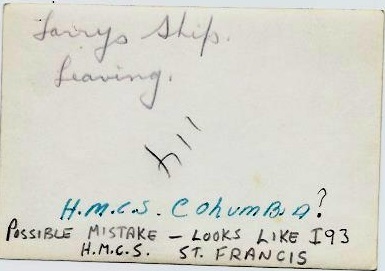 Larrys Ship.
Leaving.
H.M.C.S. COLUMBIA?
POSSIBLE MISTAKE – LOOKS LIKE I93
H.M.C.S. ST. FRANCIS